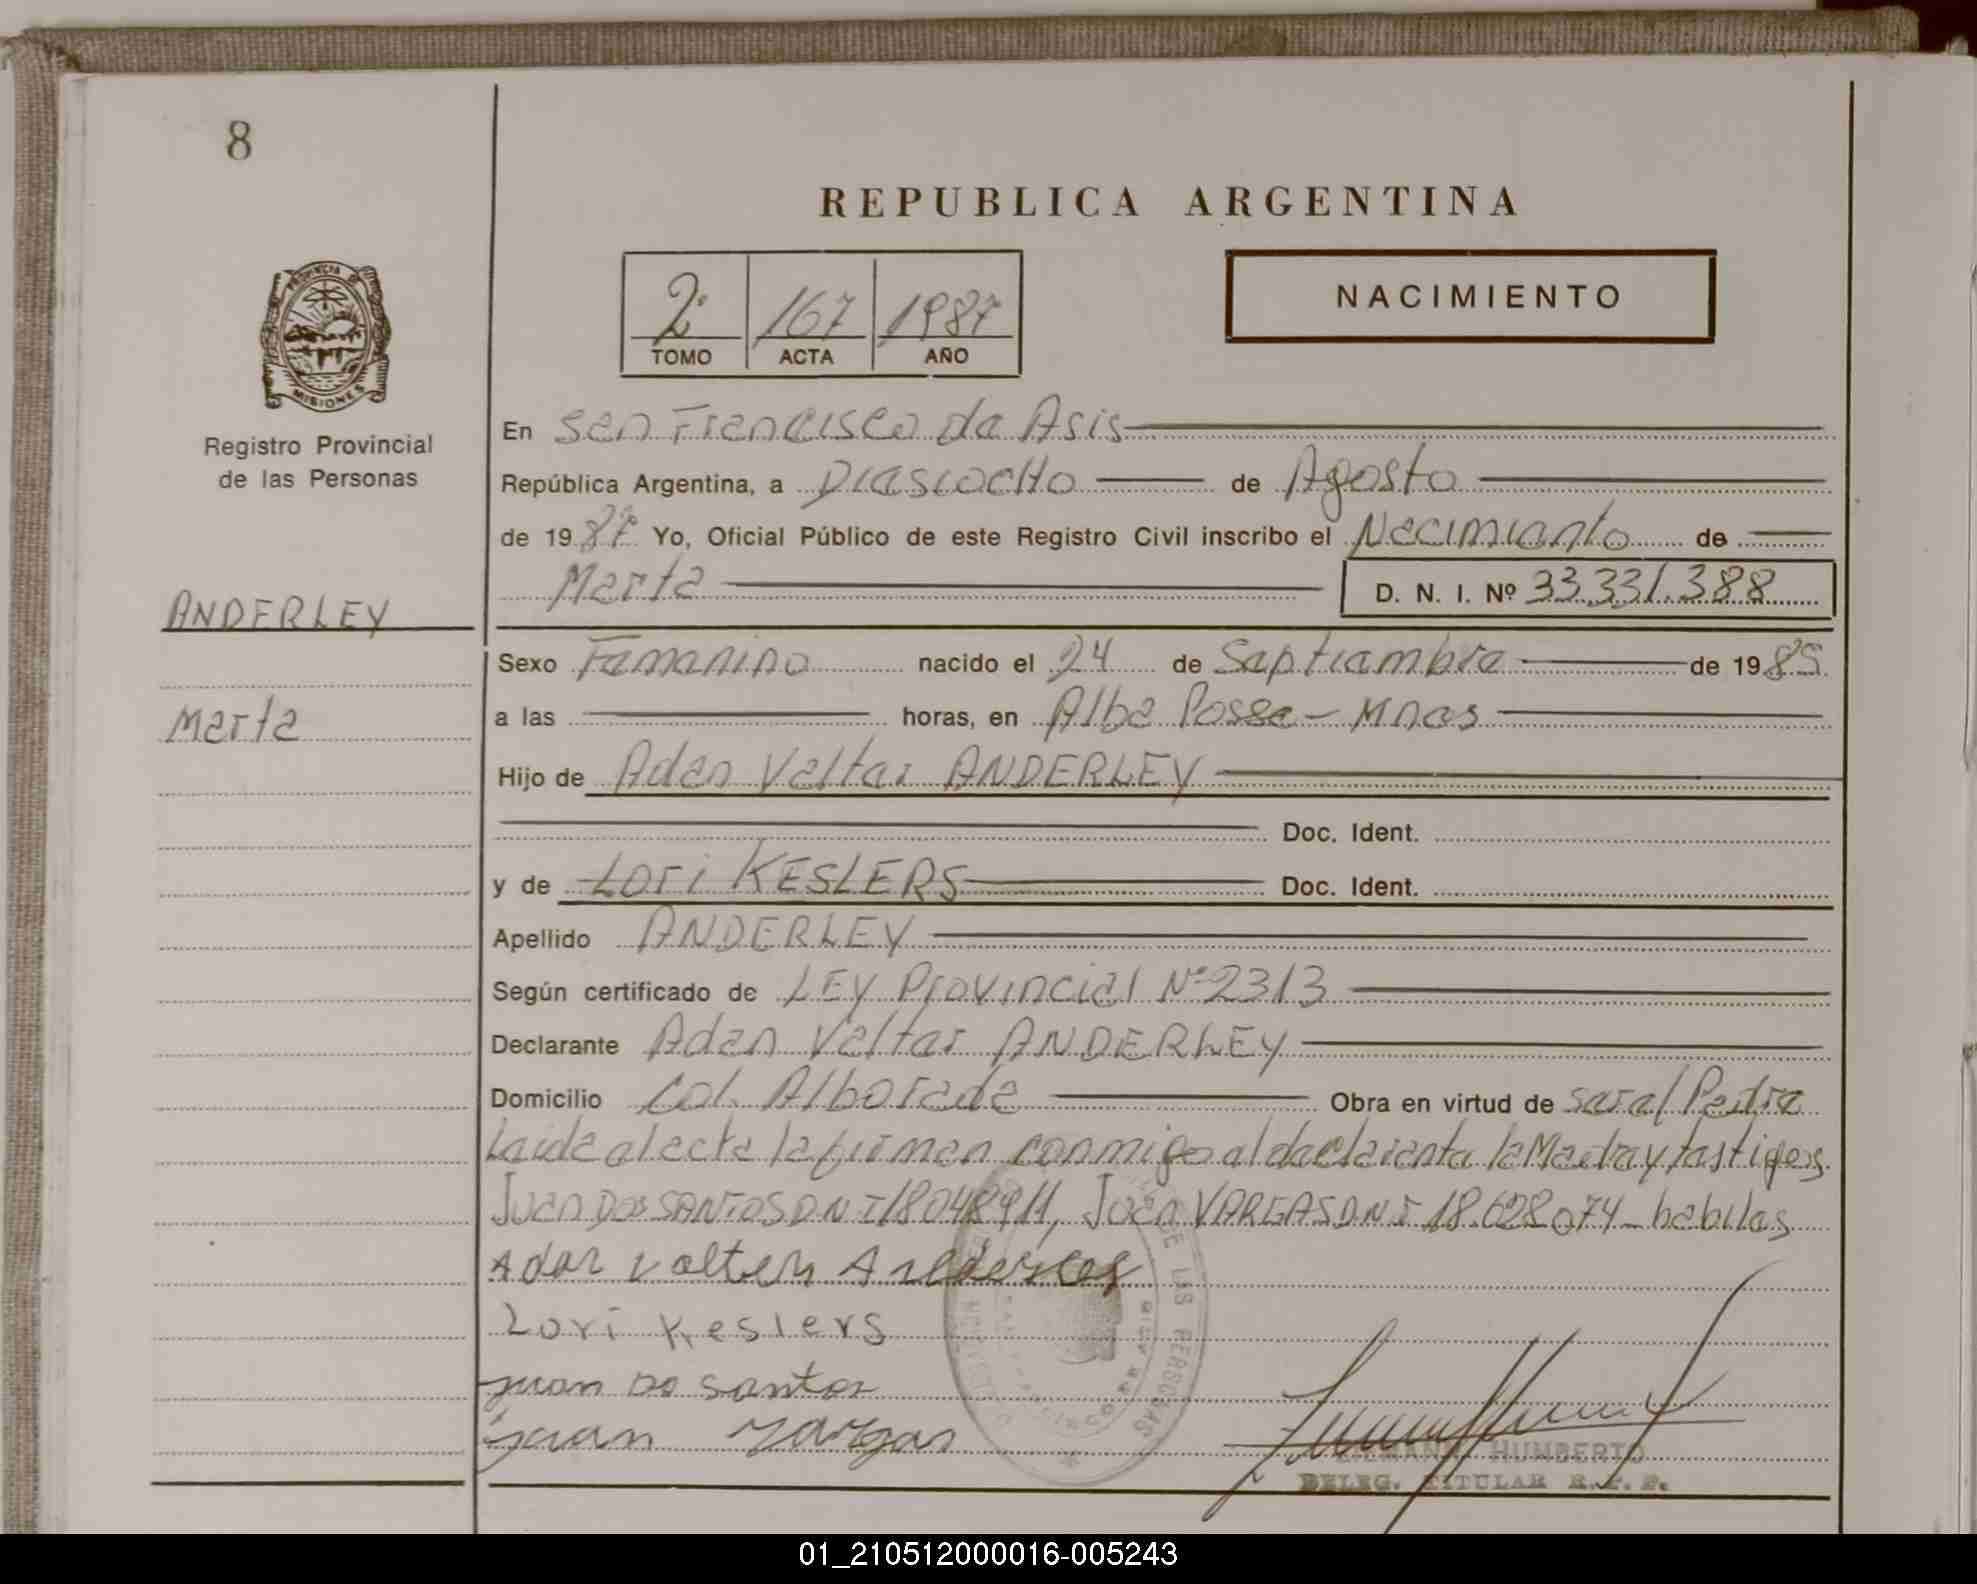 8
REPUBLICA ARGENTINA
2º 167 1987
TOMO ACTA AÑO
NACIMIENTO
PROVINCIA DE MISIONES
Registro Provincial
de las Personas
ANDERLEY
Marta
En San Francisco de Asis
República Argentina, a Dieciocho de Agosto
de 1987 Yo, Oficial Público de este Registro Civil inscribo el Nacimiento de
Marta D. N. I. Nº 33.331.388
Sexo Femenino nacido el 24 de Septiembre de 1985
a las horas, en Alba Posse - Mnes
Hijo de Adan Valter ANDERLEY
Doc. Ident.
y de Lori KESLERS Doc. Ident.
Apellido ANDERLEY
Según certificado de LEY Provincial Nº 2313
Declarante Adan Valter ANDERLEY
Domicilio Col. Alborada Obra en virtud de ser el Padre
Leida el acta la firman conmigo el declarante la Madre y testigos
Juan Dos SANTOS D N I 18048911, Juan VARGAS D N I 18.628074 - habiles
Adan Valter
Lori Keslers
Juan Do Santos
Juan Vargas
HUMBERTO
DELEG. TITULAR R. P. P.
01_210512000016-005243